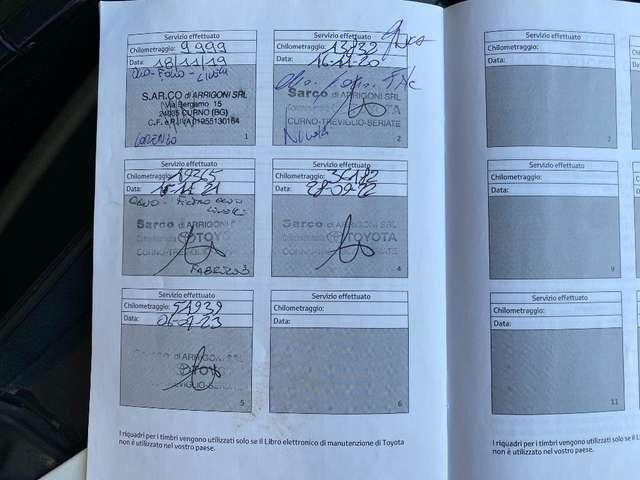 Servizio effettuato
Chilometraggio: 9999
Data: 18/11/19
S.AR.CO di ARRIGONI SRL
Via Bergamo 15
24035 CURNO (BG)
C.F. e P.IVA 01955130164
LORENZO
1
Servizio effettuato
Chilometraggio: 13732
Data: 16-11-20
Sarco di ARRIGONI SRL
Concessionaria TOYOTA
CURNO-TREVIGLIO-SERIATE
Nicola
2
Servizio effettuato
Chilometraggio: 19265
Data: 15-11-21
Sarco di ARRIGONI
Concessionaria TOY
CURNO-TREVIGLIO
FABRIZIO
3
Servizio effettuato
Chilometraggio: 36182
Data: 28-09-22
Sarco di ARRIGONI SRL
Concessionaria TOYOTA
CURNO-TREVIGLIO-SERIATE
4
Servizio effettuato
Chilometraggio: 51939
Data: 06-07-23
Sarco di ARRIGONI SRL
TOYO
TREVIGLIO-SERIATE
5
Servizio effettuato
Chilometraggio:
Data:
6
I riquadri per i timbri vengono utilizzati solo se il Libro elettronico di manutenzione di Toyota
non è utilizzato nel vostro paese.
Servizio effettuato
Chilometraggio:
Data:
Servizio effettuato
Chilometraggio:
Data:
9
Servizio effettuato
Chilometraggio:
Data:
11
I riquadri per i timbri vengono utilizzati
non è utilizzato nel vostro paese.